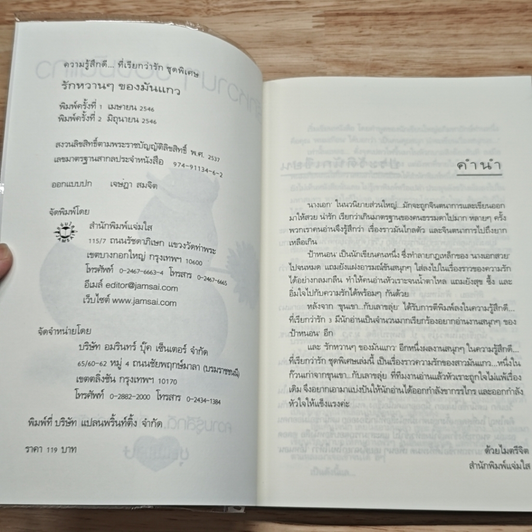 ความรู้สึกดี... ที่เรียกว่ารัก ชุดพิเศษ
รักหวานๆ ของมันแกว
พิมพ์ครั้งที่ 1 เมษายน 2546
พิมพ์ครั้งที่ 2 มิถุนายน 2546
สงวนลิขสิทธิ์ตามพระราชบัญญัติลิขสิทธิ์ พ.ศ. 2537
เลขมาตรฐานสากลประจำหนังสือ 974-91134-6-2
ออกแบบปก เจษฎา สมจิต
จัดพิมพ์โดย
สำนักพิมพ์แจ่มใส
115/7 ถนนรัชดาภิเษก แขวงวัดท่าพระ
เขตบางกอกใหญ่ กรุงเทพฯ 10600
โทรศัพท์ 0-2467-6663-4 โทรสาร 0-2465-6665
อีเมล์ editor@jamsai.com
เว็บไซต์ www.jamsai.com
จัดจำหน่ายโดย
บริษัท อมรินทร์ บุ๊ค เซ็นเตอร์ จำกัด
65/60-62 หมู่ 4 ถนนชัยพฤกษ์มาลา (บรมราชชนนี)
เขตตลิ่งชัน กรุงเทพฯ 10170
โทรศัพท์ 0-2882-2000 โทรสาร 0-2434-1384
พิมพ์ที่ บริษัท แปลนพริ้นท์ติ้ง จำกัด
ราคา 119 บาท
คำนำ
'นางเอก' ในนวนิยายส่วนใหญ่...มักจะถูกจินตนาการและเขียนออก
มาให้สวย น่ารัก เรียกว่าเกินมาตรฐานของคนธรรมดาไปมาก หลายๆ ครั้ง
พวกเราคนอ่านจึงรู้สึกว่า เรื่องราวมันไกลตัว และจินตนาการไปถึงยาก
เหลือเกิน
ป้าหนอน เป็นนักเขียนคนหนึ่ง ซึ่งทำลายกฎเหล็กของ นางเอกสวย
ไปจนหมด แถมยังแฝงอารมณ์ขันสนุกๆ ใส่ลงไปในเรื่องราวของความรัก
ได้อย่างกลมกลืน ทำให้คนอ่านหัวเราะจนน้ำตาไหล แถมยังสุข ซึ้ง และ
อิ่มใจไปกับความรักได้พร้อมๆ กันด้วย
หลังจาก 'ขุนเขา...กับเลาขลุ่ย' ได้รับการตีพิมพ์ลงในความรู้สึกดี...
ที่เรียกว่ารัก 1 มีนักอ่านเป็นจำนวนมากเรียกร้องอยากอ่านงานสนุกๆ ของ
'ป้าหนอน' อีก
และ 'รักหวานๆ ของมันแกว' อีกหนึ่งผลงานสนุกๆ ใน ความรู้สึกดี...
ที่เรียกว่ารัก ชุดพิเศษเล่มนี้ เป็นเรื่องราวความรักของสาวมันแกว...หนึ่งใน
ก๊วนเก่าจากขุนเขา...กับเลาขลุ่ย ที่ทีมงานอ่านแล้วหัวเราะถูกใจไม่แพ้เรื่อง
เดิม จึงอยากเอามาแบ่งปันให้นักอ่านได้ออกกำลังขากรรไกร และออกกำลัง
หัวใจให้แข็งแรงค่ะ
ด้วยไมตรีจิต
สำนักพิมพ์แจ่มใส